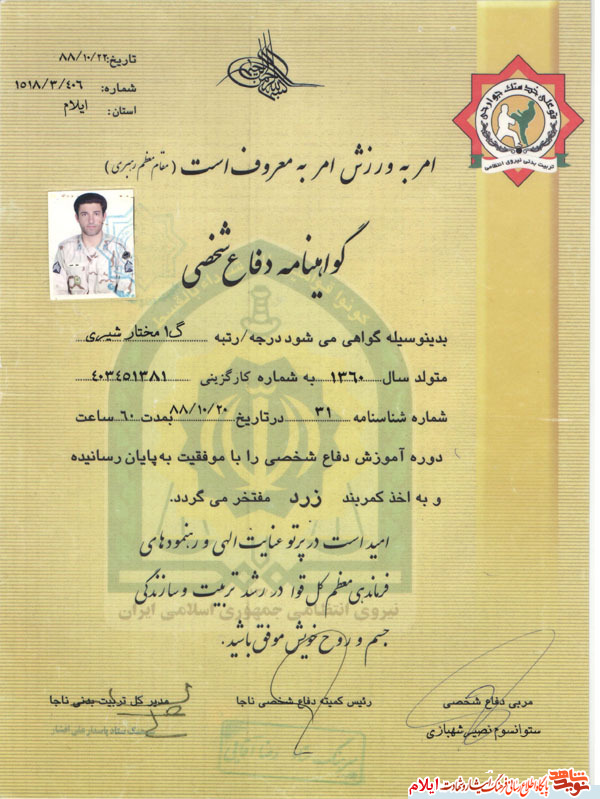 تاریخ: ۸۸/۱۰/۲۲
شماره: ۱۵۱۸/۳/۴۰۶
استان: ایلام
قو علی خدمتک جوارحی
تربیت بدنی نیروی انتظامی
امر به ورزش امر به معروف است (مقام معظم رهبری)
گواهینامه دفاع شخصی
بدینوسیله گواهی می شود درجه/رتبه گ۱ مختار شیری
متولد سال ۱۳۶۰ به شماره کارگزینی ۴۰۳۴۵۱۳۸۱
شماره شناسنامه ۳۱ در تاریخ ۸۸/۱۰/۲۰ بمدت ۶۰ ساعت
دوره آموزش دفاع شخصی را با موفقیت به پایان رسانیده
و به اخذ کمربند زرد مفتخر می گردد.
امید است در پرتو عنایت الهی و رهنمودهای
فرماندهی معظم کل قوا در رشد تربیت و سازندگی
نیروی انتظامی جمهوری اسلامی ایران
جسم و روح خویش موفق باشید.
مربی دفاع شخصی
ستوانسوم نصیر شهبازی
رئیس کمیته دفاع شخصی ناجا
مدیر کل تربیت بدنی ناجا
نوید شاهد پایگاه اطلاع رسانی فرهنگ ایثار و شهادت ایلام